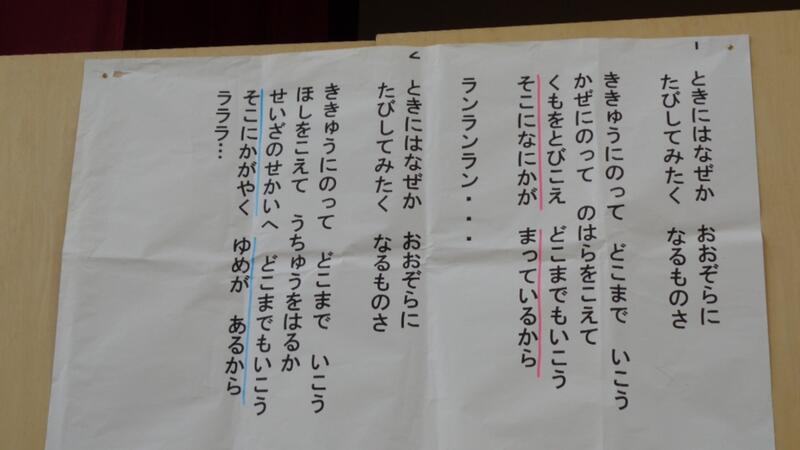 1 ときにはなぜか　おおぞらに
たびしてみたく　なるものさ
ききゅうにのって　どこまで　いこう
かぜにのって　のはらをこえて
くもをとびこえ　どこまでもいこう
そこになにかが　まっているから
ランランラン・・・
2 ときにはなぜか　おおぞらに
たびしてみたく　なるものさ
ききゅうにのって　どこまで　いこう
ほしをこえて　うちゅうをはるか
せいざのせかいへ　どこまでもいこう
そこにかがやく　ゆめが　あるから
ラララ…